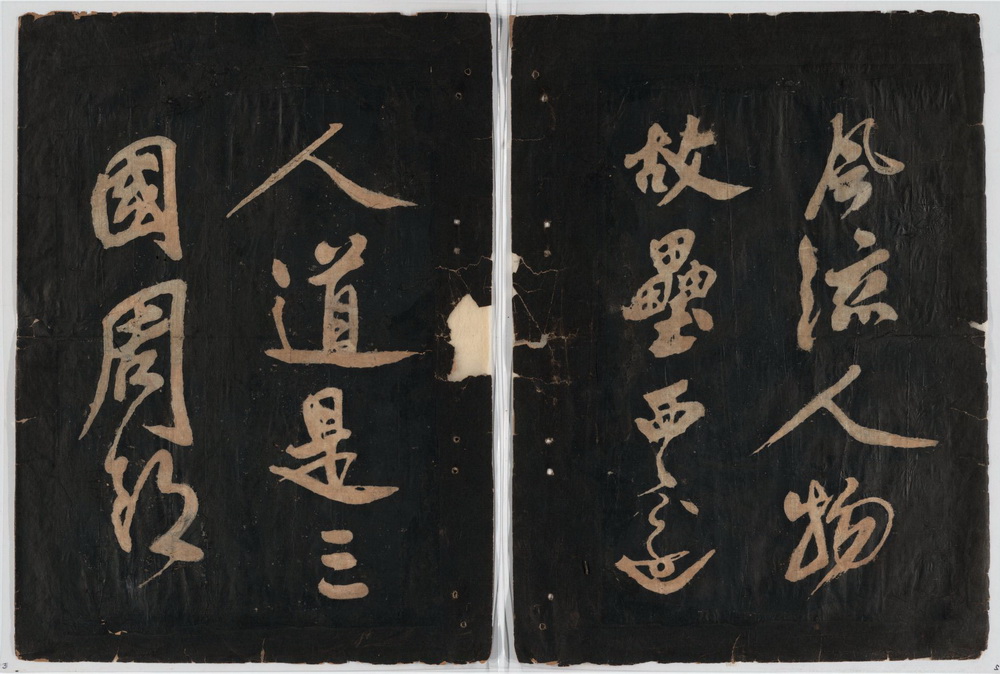 風流人物
故壘西邊
人道是三
國周郎